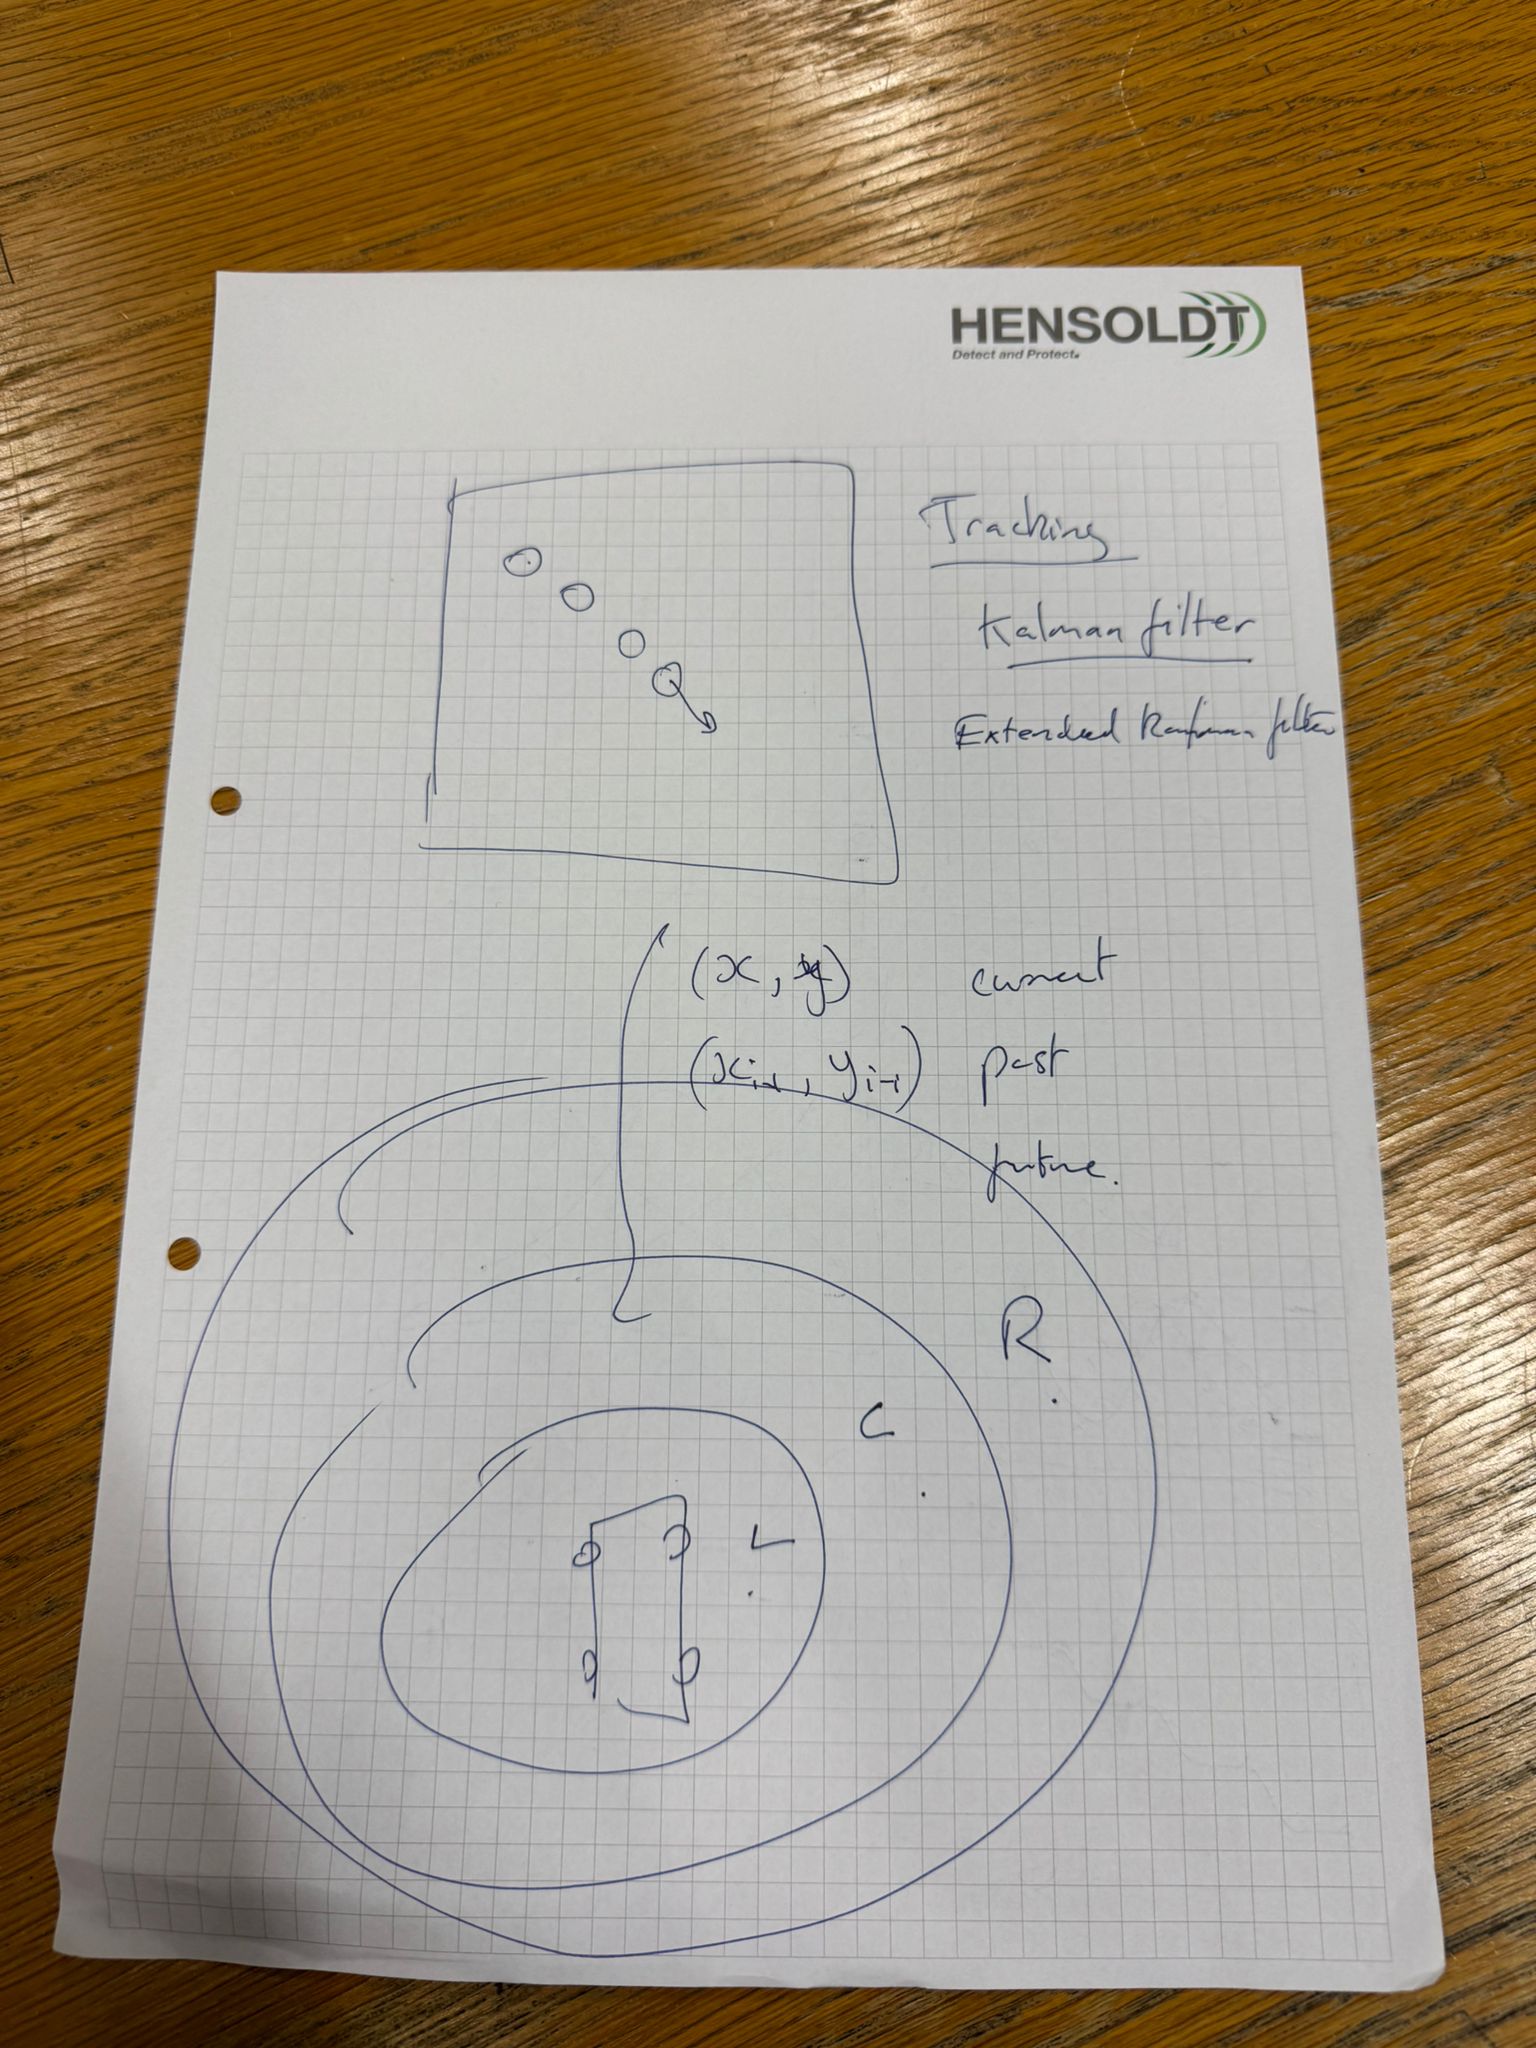 HENSOLDT
Detect and Protect.
Tracking
Kalman filter
Extended Kalman filter
(x, y) current
(xi-1, yi-1) past
future.
R
C
L